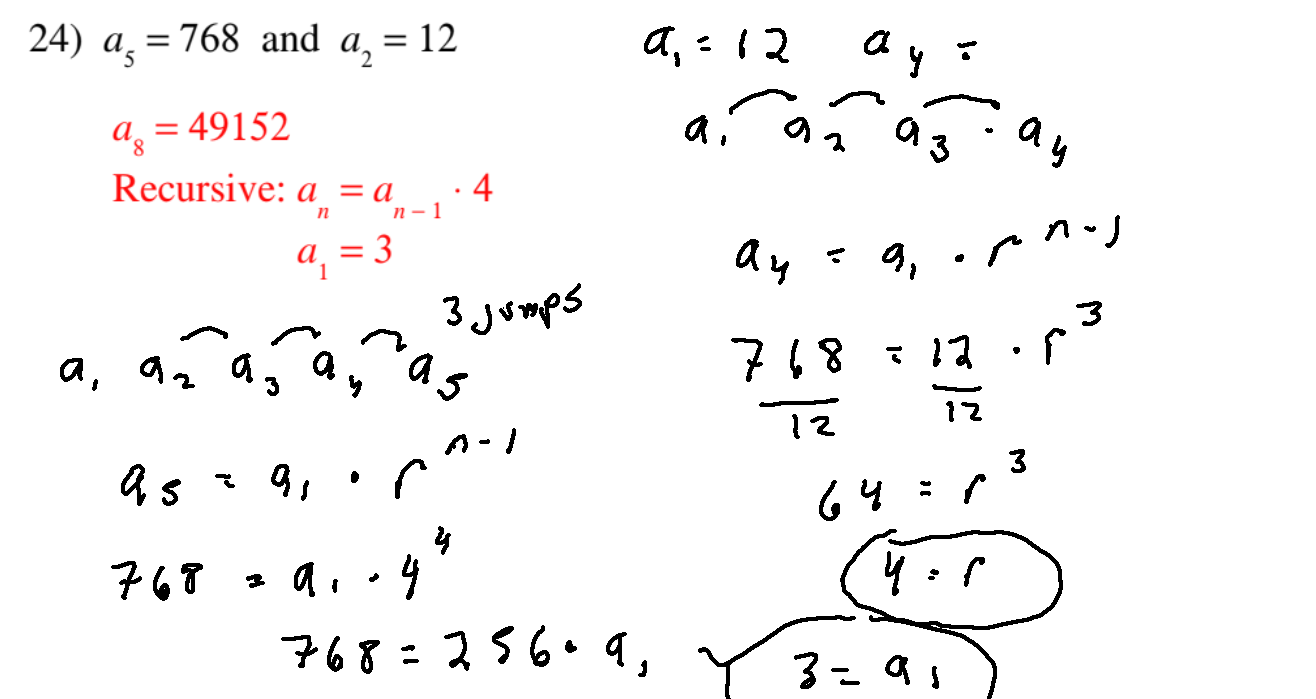 24) a₅ = 768 and a₂ = 12
a₈ = 49152
Recursive: aₙ = aₙ₋₁ · 4
a₁ = 3
3 jumps
a₁ a₂ a₃ a₄ a₅
a₅ = a₁ · r^(n-1)
768 = a₁ · 4^4
768 = 256 · a₁
a₁ = 12 a₄ =
a₁ a₂ a₃ · a₄
a₄ = a₁ · r^(n-1)
768 = 12 · r^3
12 12
64 = r^3
4 = r
3 = a₁